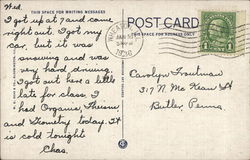 Wed.
THIS SPACE FOR WRITING MESSAGES
I got up at 7 and came
right out. I got my
car, but it was
snowing and was
very hard driving.
I got out here a little
late for class. I
had Organic,
and today. It
is cold tonight
Chas.
POST CARD
THIS SPACE FOR ADDRESS ONLY
JAN
1936
1 1
Carolyn Troutman
317 N. Mc Kean St
Butler Penna.